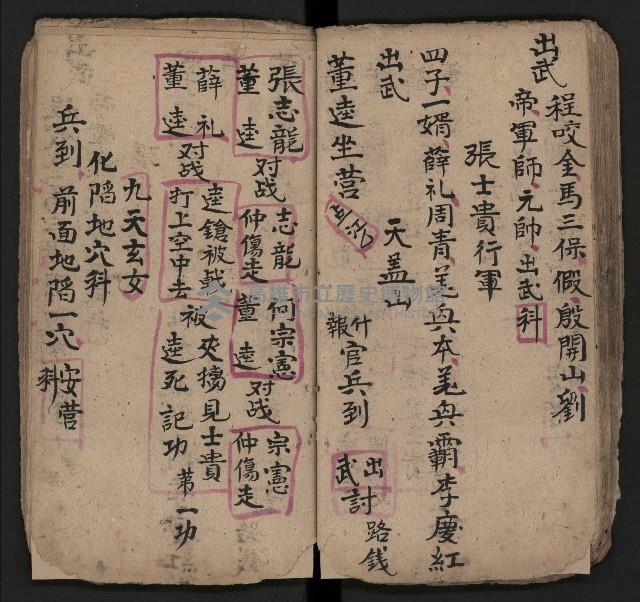 出武 程咬金、馬三保、假、殷開山、劉
帝、軍師、元帥、出武科
張士貴行軍
四子一婿、薛礼、周青、姜興本、姜興霸、李慶紅
出武 天盖山
什報 官兵到 出武討路錢
董逵坐营
張志龍 董逵 对战 志龍 仲傷走 何宗憲 董逵 对战 宗憲 仲傷走
薛礼 董逵 对战 逵鎗被
打上空中去 被 見士貴
逵死 記功 第一功
九天玄女
化陷地穴科
兵到、前面地陷一穴 安营科
高雄市立歷史博物館